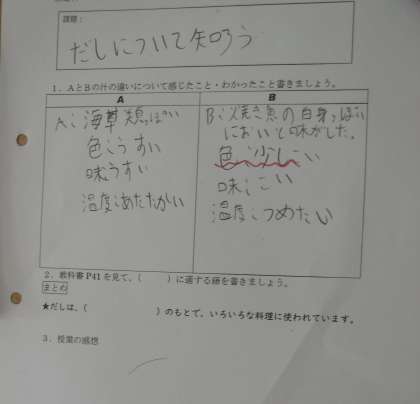 課題：
だしについて知ろう
1．AとBの汁の違いについて感じたこと・わかったこと書きましょう。
A B
A：海草類っぽい
色：うすい
味：うすい
温度：あたたかい
B：焼き魚の白身っぽい
においと味がした。
色：少しこい
味：こい
温度：つめたい
2．教科書P41を見て、（　　）に適する語を書きましょう。
まとめ
★だしは、（　　　　　　）のもとで、いろいろな料理に使われています。
3．授業の感想